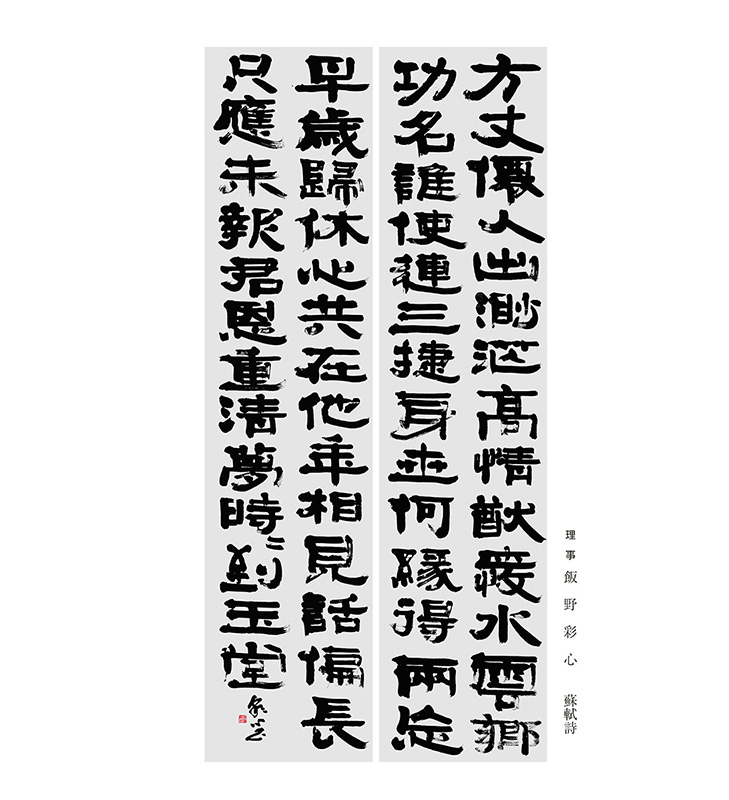 方丈僊人出渺茫高情猷愛水雲鄉
功名誰使連三捷身世何緣得兩忘
早歲歸休心共在他年相見話偏長
只應未報君恩重清夢時〻到玉堂
理事 飯野彩心 蘇軾詩